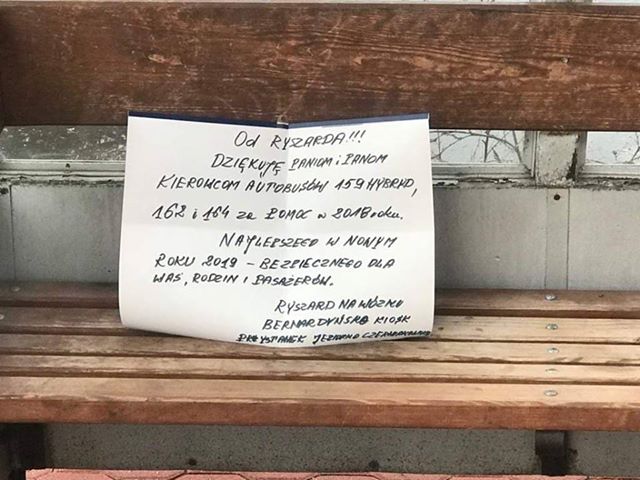 Od RYSZARDA!!!
DZIĘKUJĘ PANIOM i PANOM
KIEROWCOM AUTOBUSÓW 159 HYBRYD,
162 i 164 za POMOC w 2018 roku.
NAJLEPSZEGO W NOWYM
ROKU 2019 – BEZPIECZNEGO DLA
WAS, RODZIN i PASAŻERÓW.
RYSZARD NA WÓZKU
BERNARDYŃSKA KIOSK
PRZYSTANEK JEZIORKO